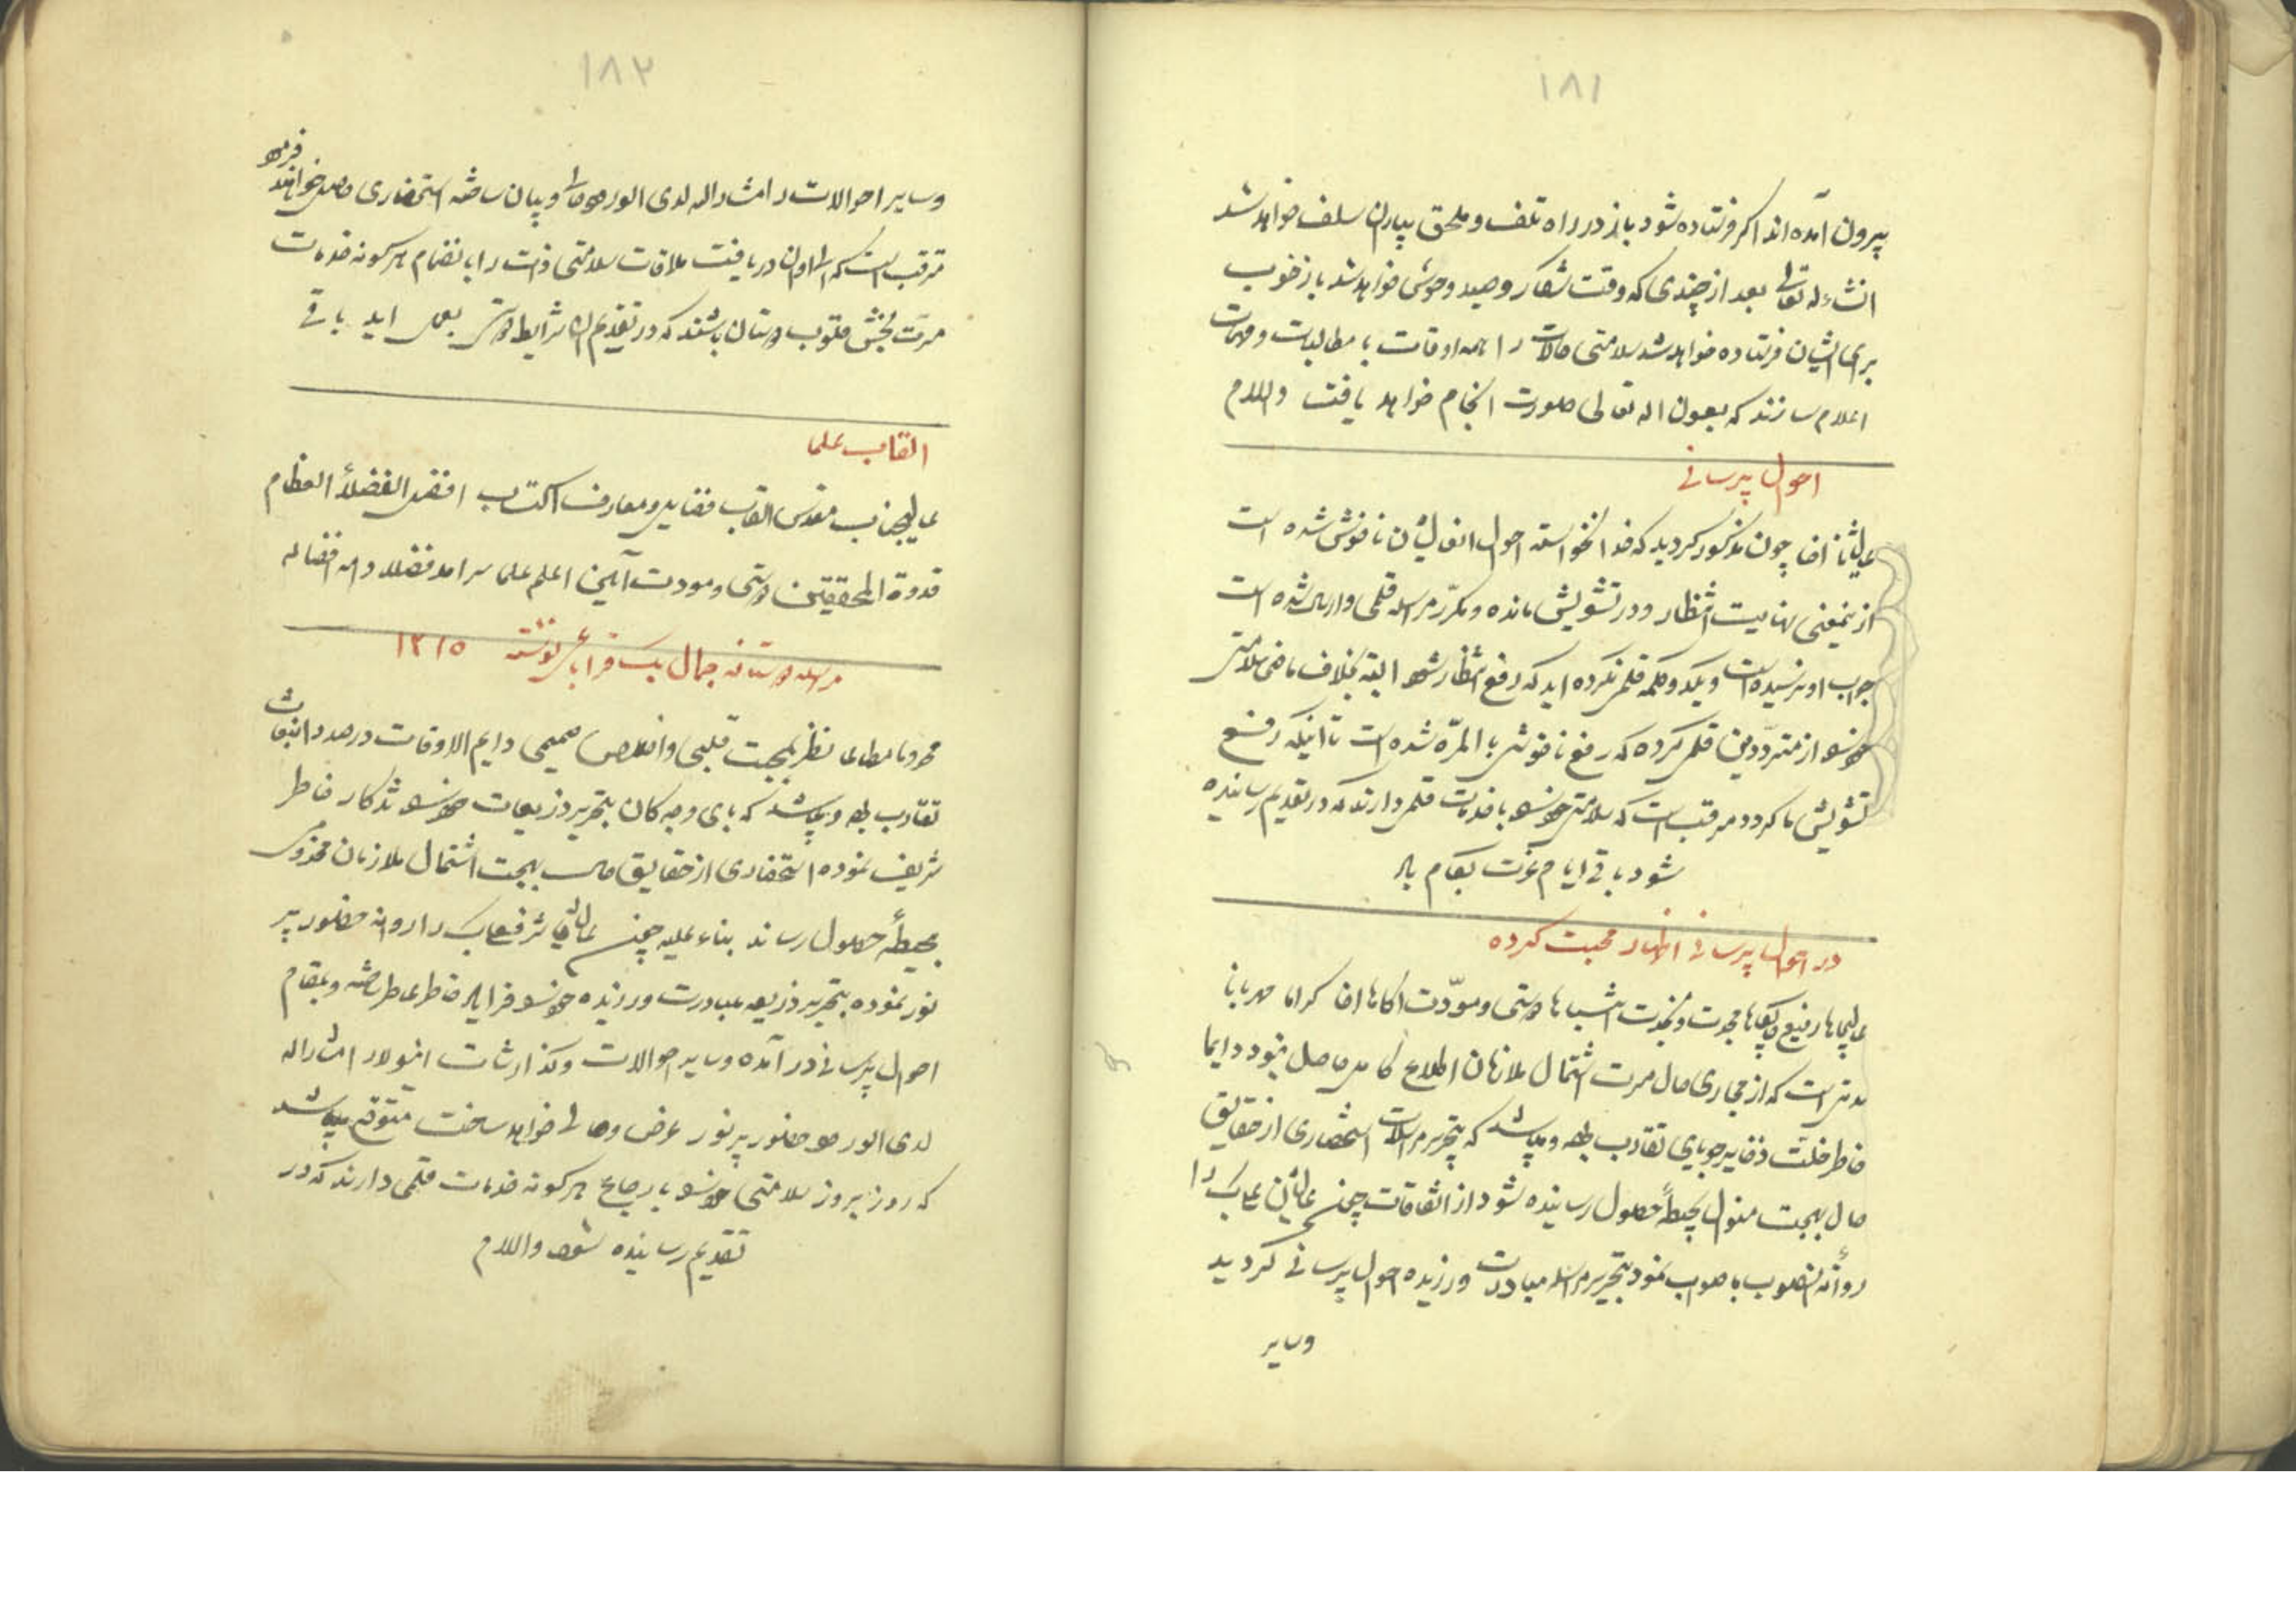 ۱۸۱
بیرون آمده اند اگر فرستاده شود باز در راه تلف و ملحق بیاران سلف خواهد شد
انشاءاله تعالی بعد از چندی که وقت شکار و صید وحوش خواهد شد باز خوب
برای ایشان فرستاده خواهد شد سلامتی حالات را همه اوقات با مطالبات و مهمات
اعلام سازند که بعون اله تعالی صورت انجام خواهد یافت والسلام
احوال پرسانی
عالیشانا چون مذکور گردید که خدا نخواسته احوال ناخوش شده است
ازینمعنی نهایت انتظار و در تشویش مانده و مکرّر مراسله قلمی و ارسال شده است
جواب او نرسیده است و یکدو کلمه قلمی نکرده اید که رفع انتظار شود البته بخلاف ماضی سلامتی
خود را از متردّدین قلمی کرده که رفع ناخوشی بالمرّه شده است تا اینکه رفع
تشویش ما گردد مترقب است که سلامتی خود را با خدمات قلمی دارند که در تقدیم رسانیده
شود باقی ایام عزت بکام باد
در احوال پرسانی اظهار محبت کرده
عالیجاها رفیع جایگاها مجدت و نجدت انتسابا دوستی و مودّت اکاها مهربانا
مدتی است که از مجاری حال مسرت اشتمال ملازمان اطلاع کامل حاصل ننمود دایما
خاطر خلت ذخایر جویای تقارب بوده و میباشد که بتحریر مراسلات استحضاری از حقایق
حال بهجت منوال بحیطهٔ حصول رسانیده شود از اتفاقات چون عالیشان را
روانه انصوب با صواب نمود بتحریر مراسله مبادرت ورزیده احوال پرسانی گردید
وسایر
۱۸۲
وسایر احوالات را مشارالیه لدی الورود حالی و بیان ساخته استحضاری حاصل خواهند فرمود
مترقب است که دریافت ملاقات سلامتی ذات را بانضمام هر گونه خدمات
مسرت بخش قلوب دوستان باشند که در تقدیم ان شرایط دوستی بعمل اید باقی
القاب علما
عالیجناب مقدس القاب فضایل و معارف اکتساب افضل الفضلاء العظام
قدوة المحققین دوستی و مودت آیین اعلم علما سرامد فضلا دام افضاله
مراسله دوستانه جمال بیک نوشته ۱۳۱۵
مخدوما مطاعا نظر بمحبت قلبی و اخلاص صمیمی دایم الاوقات در صدد
تقارب بوده و میباشد که بای وجه کان بتحریر ذریعجات خود را تذکار خاطر
شریف نموده استحضاری از حقایق حال بهجت اشتمال ملازمان مخدومی
بحیطهٔ حصول رساند بناء علیه چون را روانه حضور پر
نور نموده بتحریر ذریعه مبادرت ورزیده خود را فرایاد خاطر عاطر ساخته و بمقام
احوال پرسانی در آمده وسایر احوالات و گذارشات انولا را مشارالیه
لدی الورود حضور پرنور عرض و حالی خواهد ساخت متوقع میباشد
که روز بروز سلامتی خود را با رجاع هر گونه خدمات قلمی دارند که در
تقدیم رسانیده شود والسلام